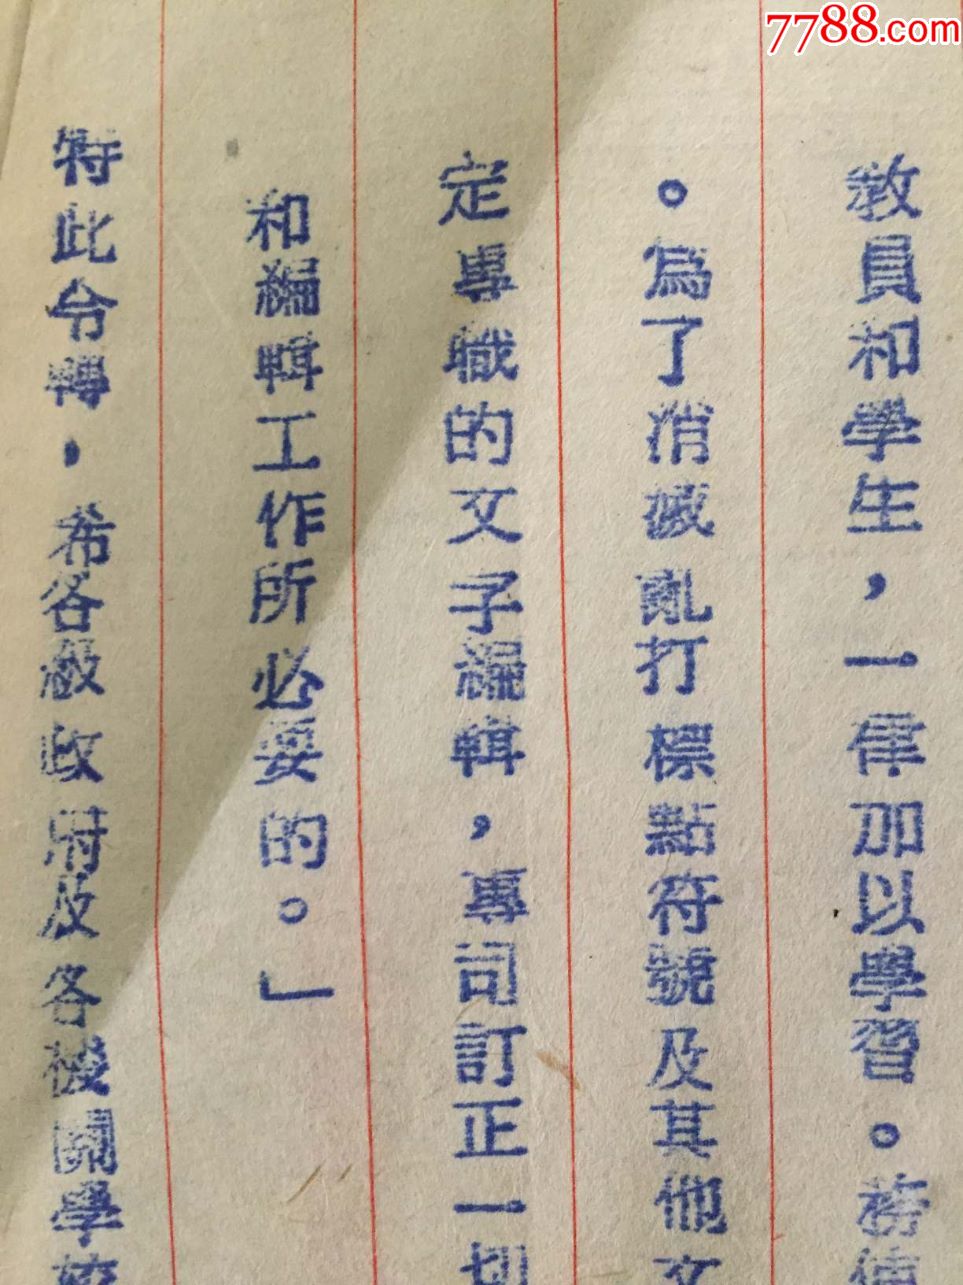 7788.com
教員和學生，一律加以學習。務使
。為了消滅亂打標點符號及其他文
定專職的文子編輯，專司訂正一切
和編輯工作所必要的。」
特此令轉，希各級政府及各機關學校